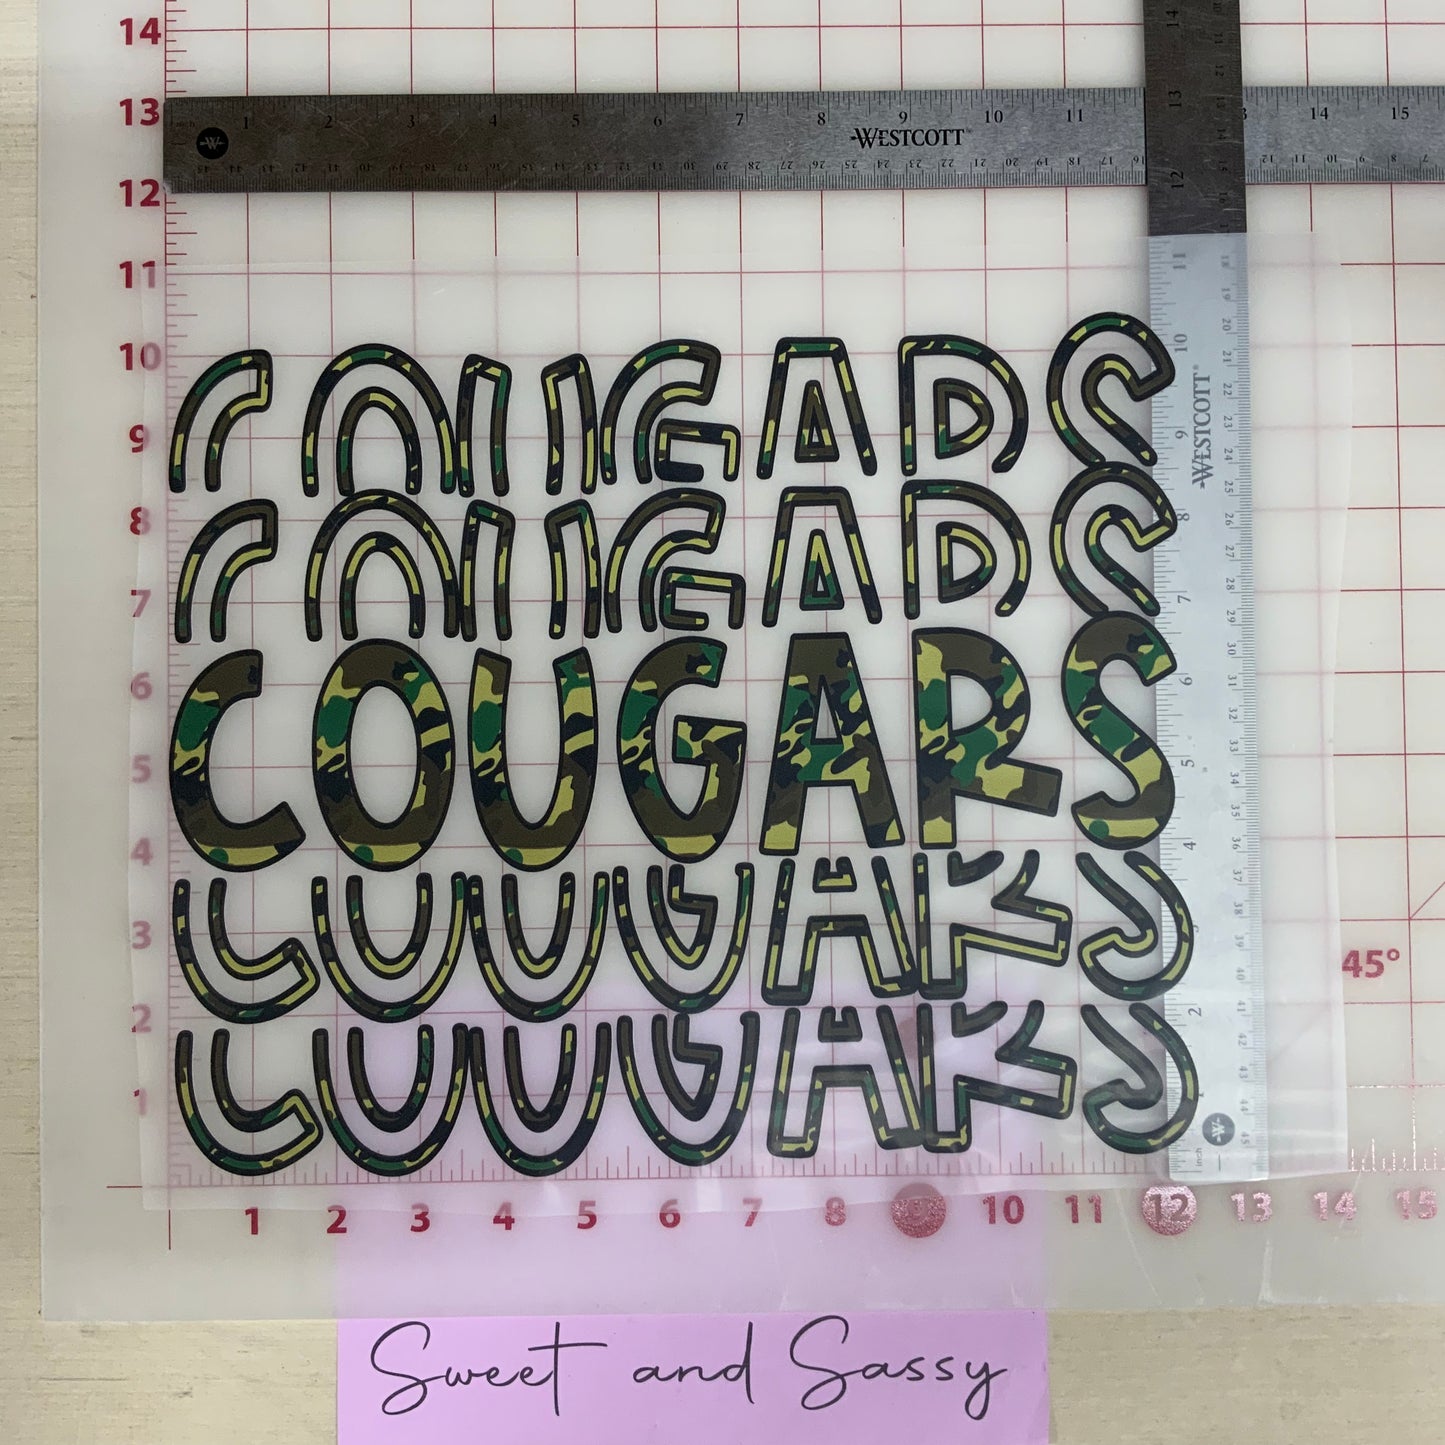 14
13
12
11
10
9
8
7
6
5
4
3
2
1
1 2 3 4 5 6 7 8 9 10 11 14 15
WESTCOTT
14
13
12
11
10
9
8
7
6
5
4
3
2
WESTCOTT
COUGARS
COUGARS
COUGARS
COUGARS
COUGARS
45°
1 2 3 4 5 6 7 8 9 10 11 12 13 14 15
Sweet and Sassy